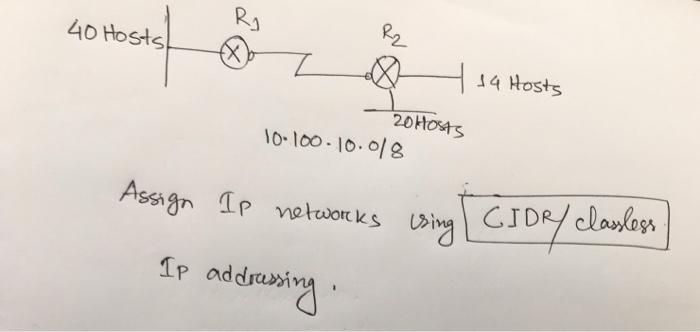 R1
R2
40 Hosts
14 Hosts
20 Hosts
10.100.10.0/8
Assign IP networks using CIDR/classless
IP addrassing.